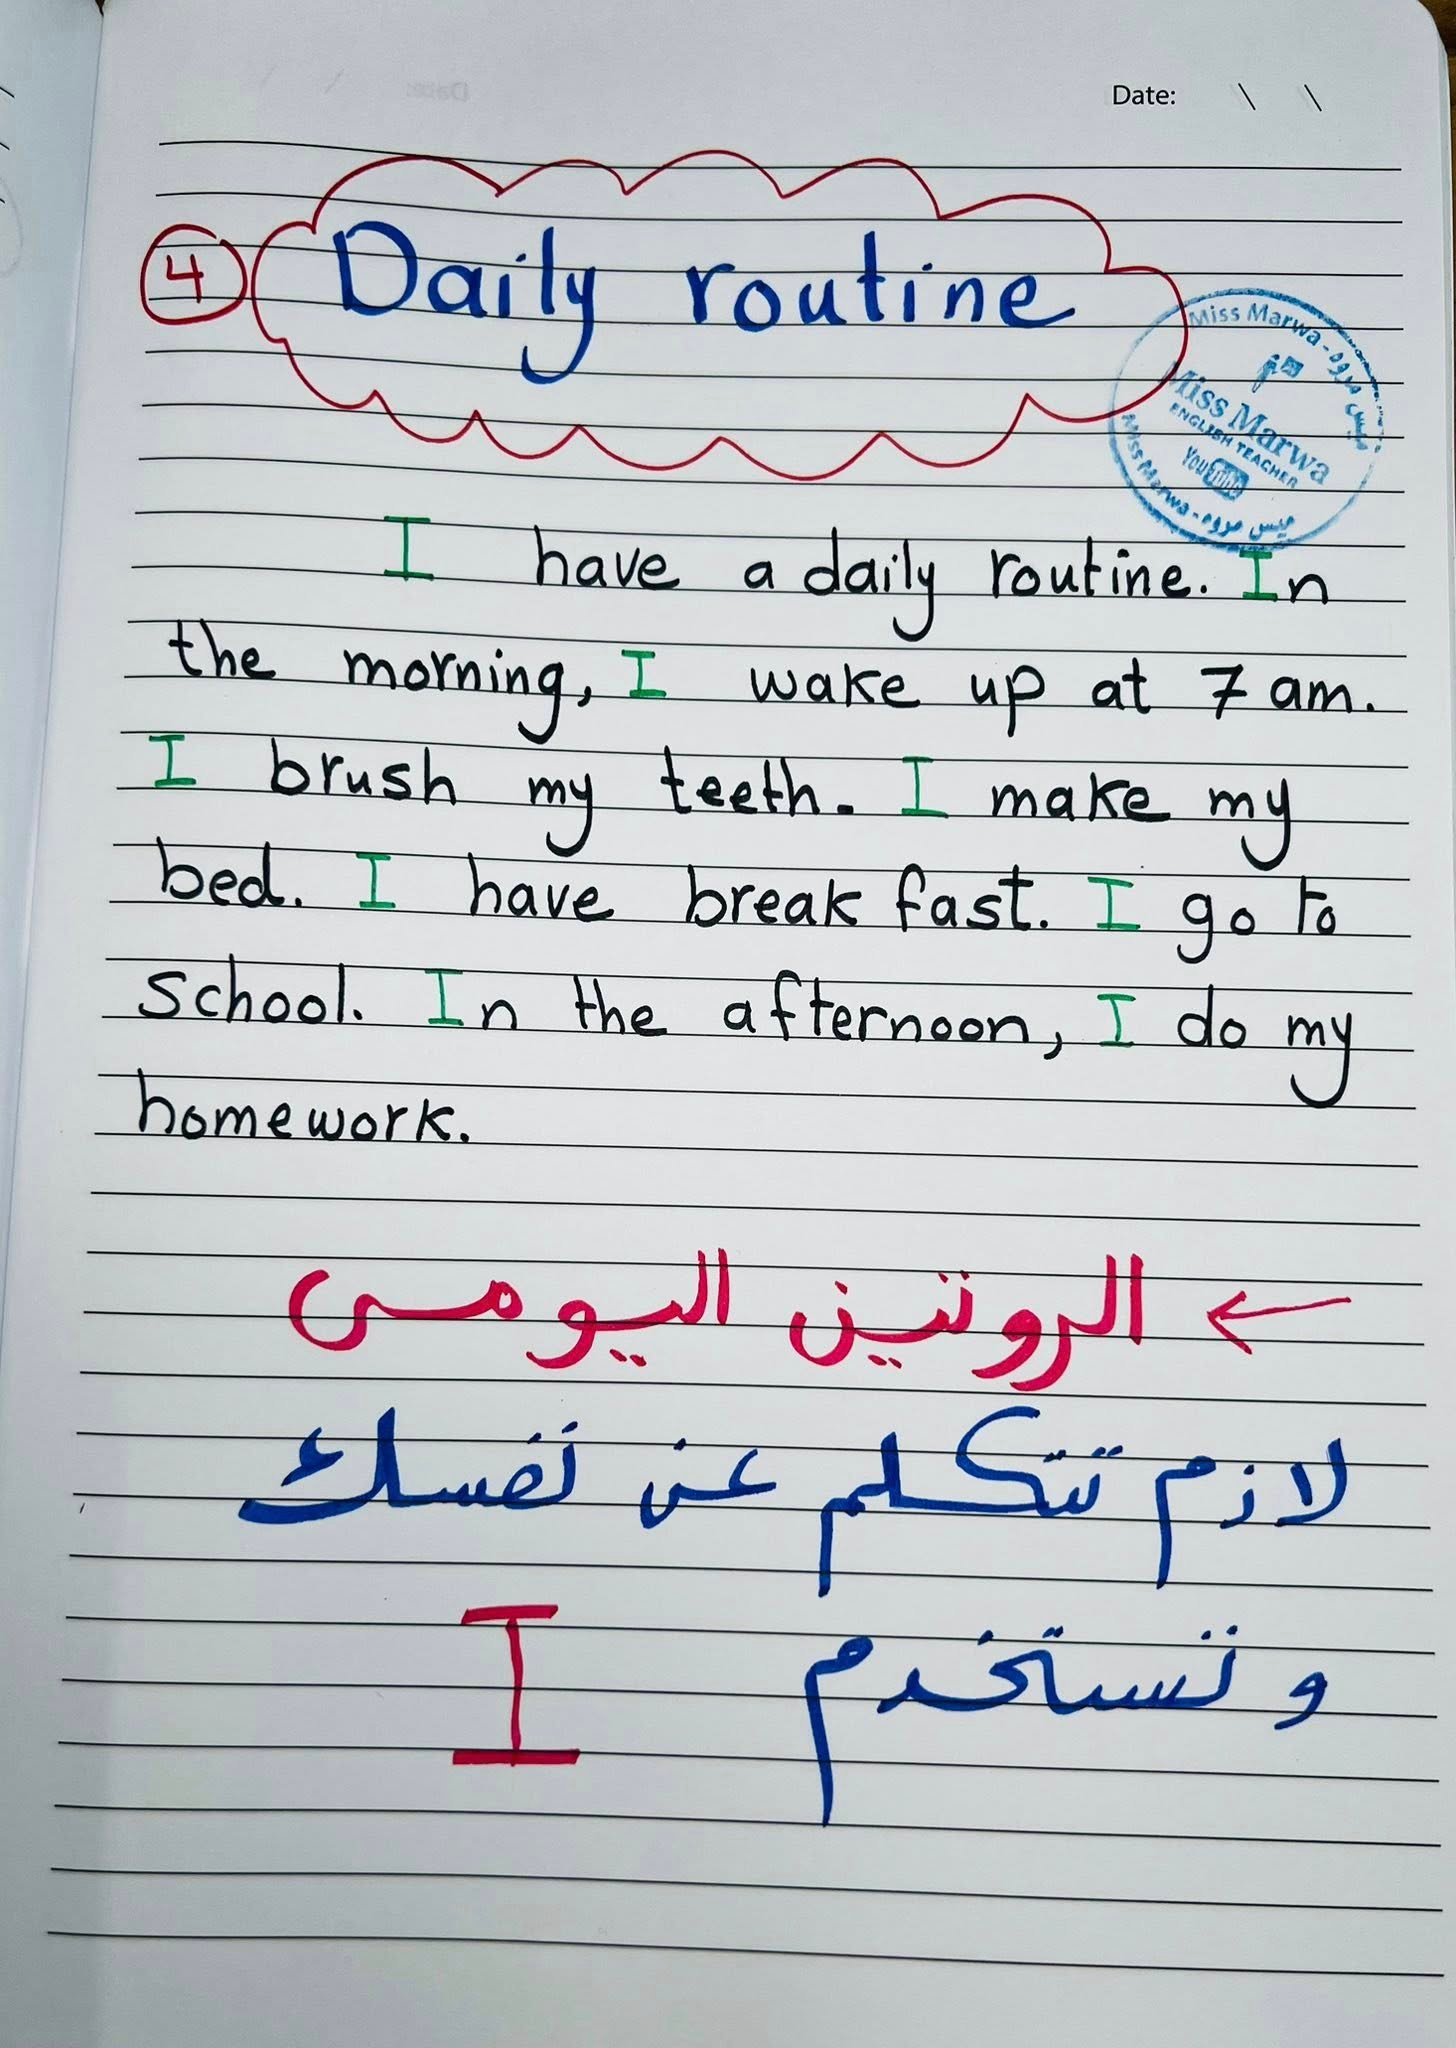 Date: \ \
4 Daily routine
Miss Marwa - ميس مروه
Miss Marwa
ENGLISH TEACHER
YouTube
Miss Marwa - ميس مروه
I have a daily routine. In
the morning, I wake up at 7 am.
I brush my teeth. I make my
bed. I have breakfast. I go to
school. In the afternoon, I do my
homework.
← الروتين اليومى
لازم تتكلم عن نفسك
ونستخدم I